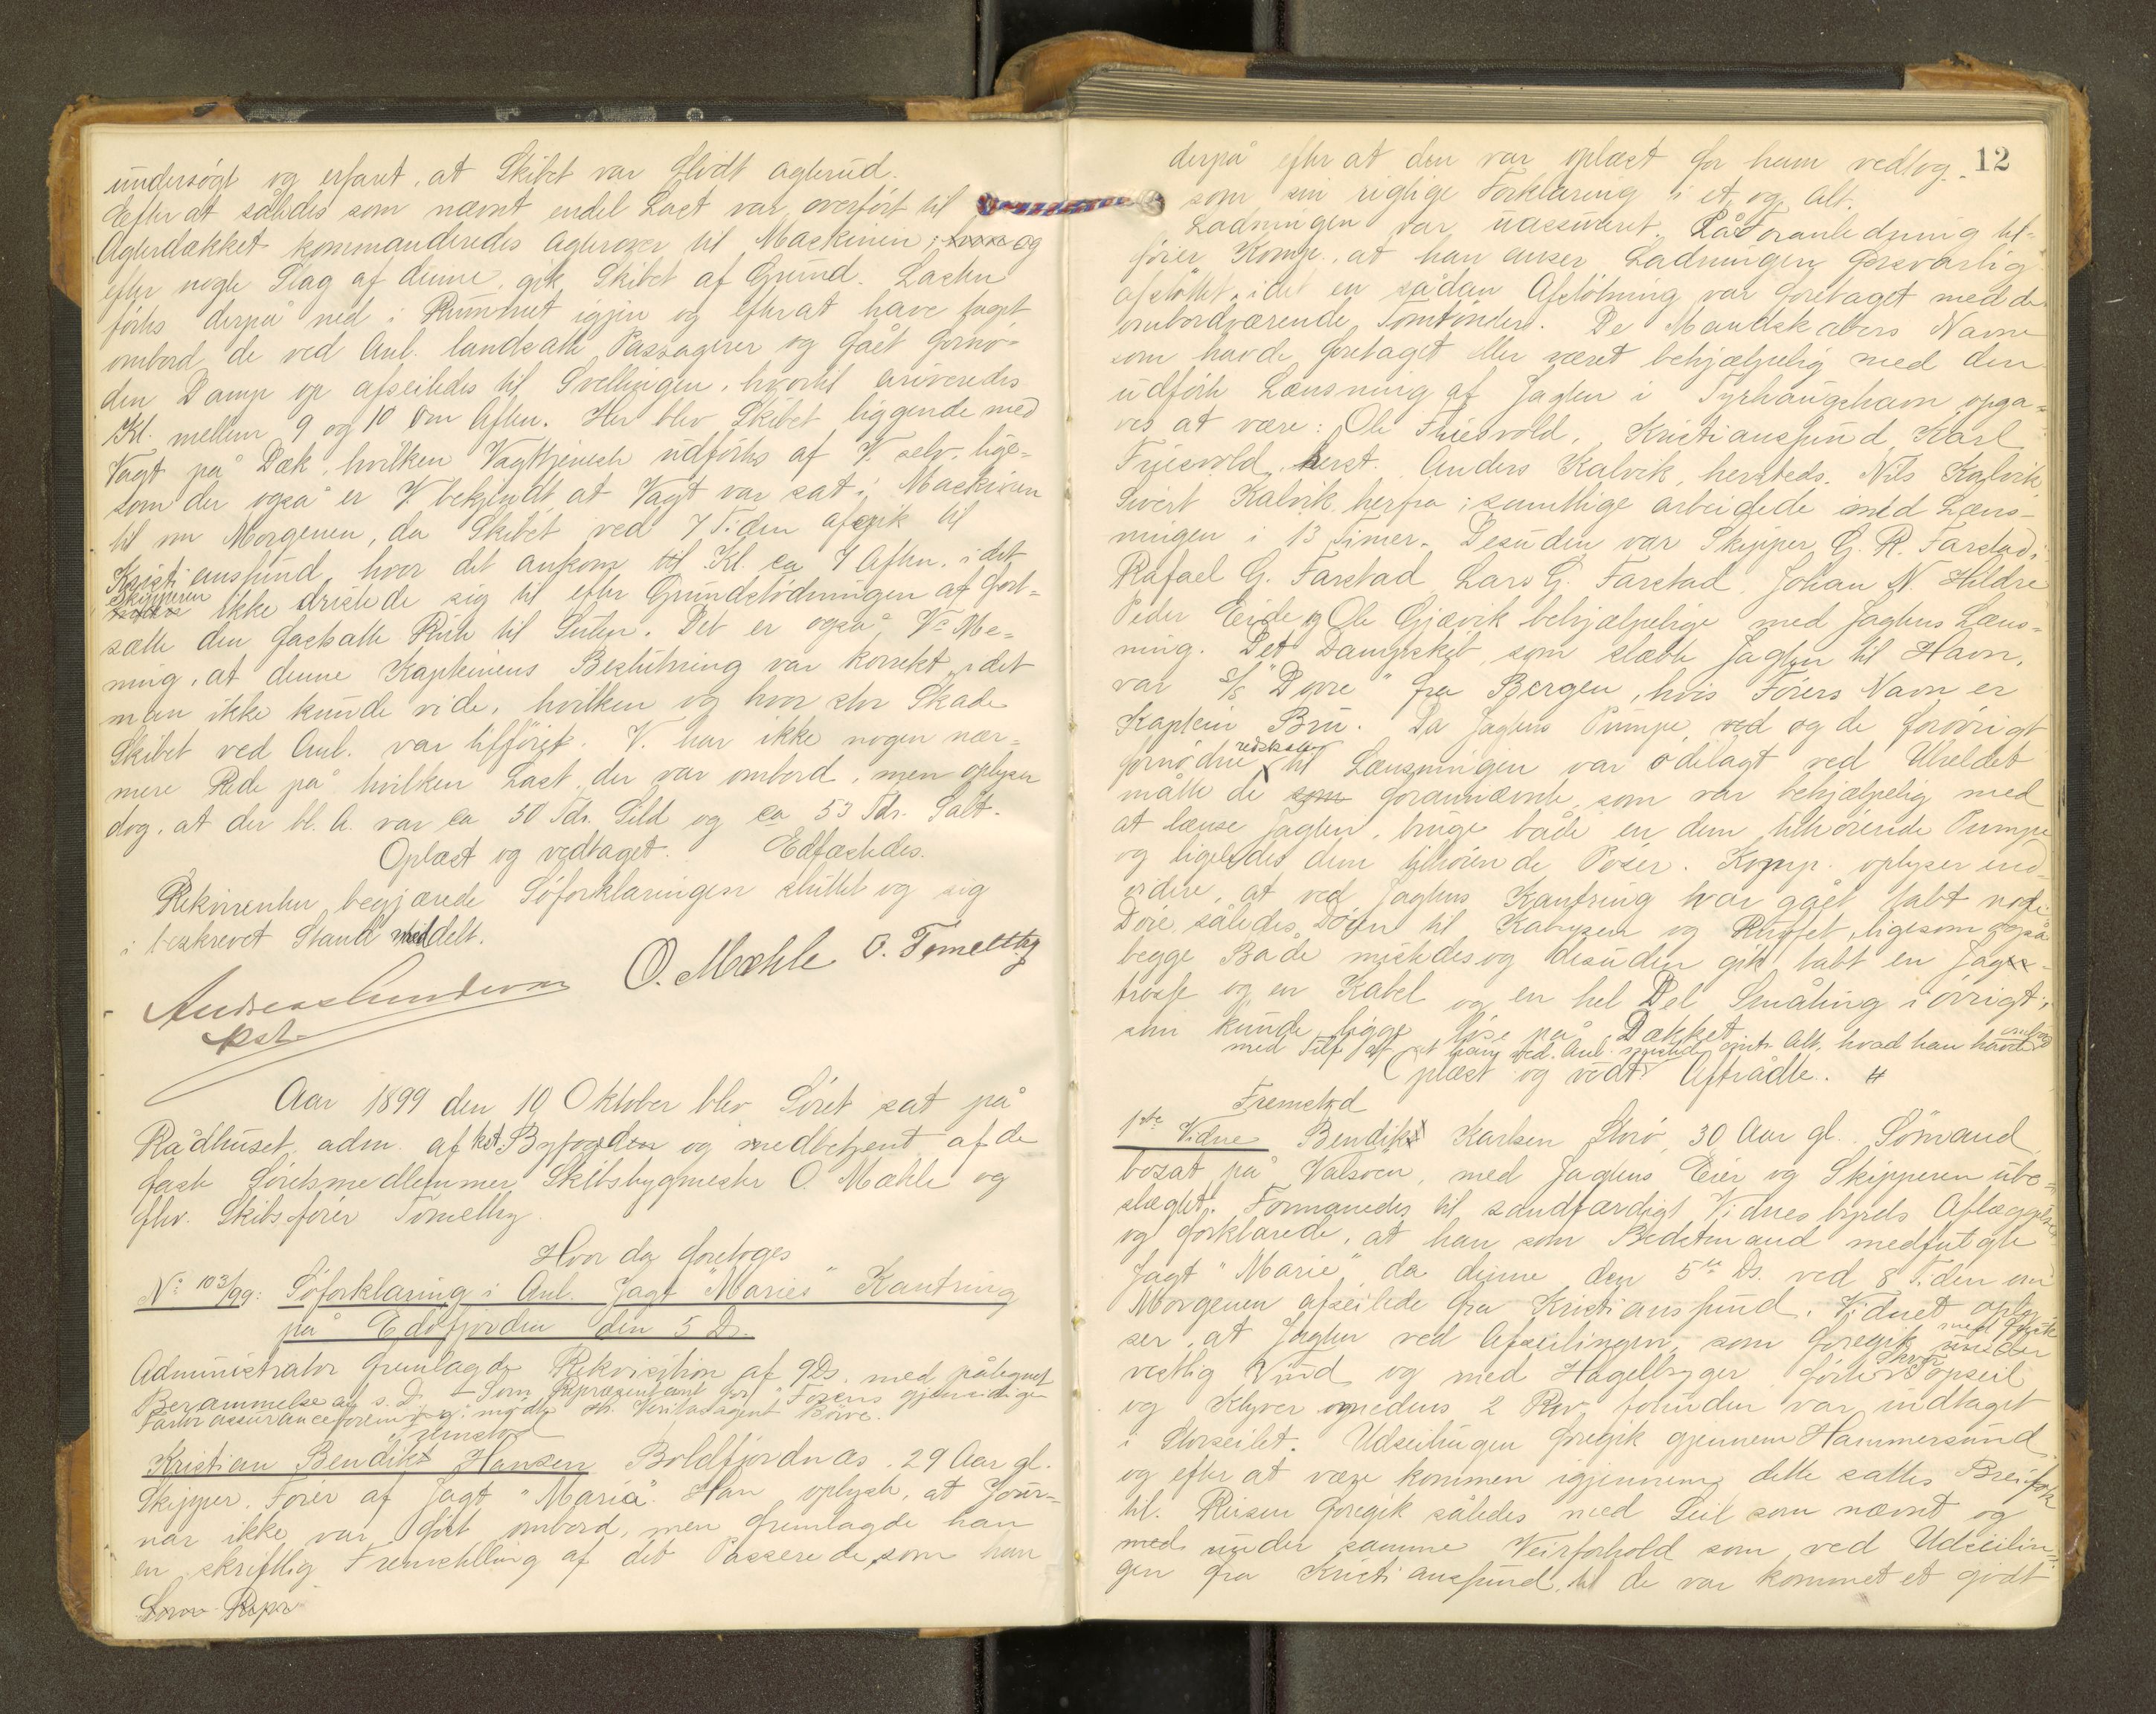 undersøgt og erfaret, at Skibet var flodt agterud.
Efter at således som nævnt endel Last var overført til
Agterdækket kommanderedes agterover til Maskinen, og
efter nogle Slag af denne, gik Skibet af Grund. Lasten
førtes derpå ned i Rummet igjen og efterat have taget
ombord de ved Anl. landsatte Passagerer og fået fornø-
den Damp op afseiledes til Svellingen, hvortil ariveredes
Kl. mellem 9 og 10 om Aften. Her blev Skibet liggende med
Vagt på Dæk, hvilken Vagttjeneste udførtes af V. selv, lige-
som der også er V. bekjendt at Vagt var sat i Maskinen
til om Morgenen, da Skibet ved 7 Tiden afgik til
Kristiansund hvor det ankom til Kl. ca 7 Aften, idet
Skipperen ikke dristede sig til efter Grundstødningen at fort-
sætte den fastsatte Rute til Suten. Det er også V.s Me-
ning, at denne Kapteinens Beslutning var korrekt, idet
man ikke kunde vide, hvilken og hvor stor Skade
Skibet ved Anl. var tilføiet. V. har ikke nogen nær-
mere Rede på hvilken Last der var ombord, men oplyser
dog, at der bl. A. var ca 50 Tdr. Sild og ca 53 Tdr. Salt.
Oplæst og vedtaget. Edfæstedes.
Rekvirenten begjærede Søforklaringen sluttet og sig
i beskrevet Stand meddelt.
O. Mæhle O. Tømelthy
kst.
Aar 1899 den 10 Oktober blev Søret sat på
Rådhuset adm. af kst. Byfogden og medbetjent af de
faste Søretsmedlemmer Skibsbygmester O. Mæhle og
fhv. Skibsfører Tømelthy.
Hvor da foretoges
No 103/99: Søforklaring i Anl. Jagt "Maries" Kantring
på Edøfjorden den 5 Ds.
Administrator fremlagde Rekvisition af 9 Ds. med påtegnet
Berammelse af s. D. – Som Repræsentant for "Fosens gjensidige
Fartøiassuranceforening" mødte Hr. Veritasagent Børve.
Fremstod
Kristian Bendikt Hansen Boldfjordnæs, 29 Aar gl.
Skipper, Fører af Jagt "Maria". Han oplyste, at Jour-
nar ikke var ført ombord, men fremlagde han
en skriftlig Fremstilling af det Passerede, som han
12
derpå efter at den var oplæst for ham vedtog
som sin rigtige Forklaring i et og alt.
Ladningen var uassureret. På Foranledning til-
føier Komp., at han anser Ladningen forsvarlig
afstøttet, idet en sådan Afstøtning var foretaget med de
ombordværende Tomtønder. De Mandskabers Navne
som havde foretaget eller været behjælpelig med den
udførte Lænsning af Jagten i Tyrhaugshavn, opga-
ves at være: Ole Fuesvold, Kristiansund, Karl
Fuesvold, herst. Anders Kalvik, hersteds. Nils Kalvik,
Sivert Kalvik, herfra; samtlige arbeidede med Læns-
ningen i 13 Timer. Desuden var Skipper G. R. Farstad,
Rafael G. Farstad Lars G. Farstad, Johan N. Hildre
Peder Eide og Ole Gjævik behjælpelige med Jagtens Læns-
ning. Det Dampskib, som slæbte Jagten til Havn,
var S/S "Dovre" fra Bergen, hvis Førers Navn er
Kaptein Bru. Da Jagtens Pumpe, ved og de forøvrigt
fornødne redskaber til Lænsningen var ødelagt ved Uheldet
måtte de som forannævnte, som var behjælpelig med
at lænse Jagten, bruge både en dem tilhørende Pumpe
og ligeledes dem tilhørende Pøser. Komp. oplyser end-
videre, at ved Jagtens Kantring var gået tabt nogle
Døre således Døren til Kabyssen og Ruffet, ligesom også
begge Både mistedes og desuden gik tabt en Jag-
trosse og en Kabel og en hel Del Småting iøvrigt,
som kunde ligge løse på Dækket
med Tilf. af at han ved Anl. mistede sint Alt, hvad han havde ombord
Oplæst og vedt. Aftrådte.
Fremstod
1ste Vidne Bendikt Karlsen Storø, 30 Aar gl. Sømand
bosat på Valsøen, med Jagtens Eier og Skipperen ube-
slægtet. Formanedes til sandfærdigt Vidnesbyrds Aflæggelse
og forklarede, at han som Bedstemand medfulgte
Jagt "Marie", da denne den 5te Ds. ved 8 Tiden om
Morgenen afseilede fra Kristiansund. Vidnet oply-
ser, at Jagten ved Afseilingen, som foregik under
vestlig Vind og med Hagelbyger førte Topseil
og Klyver medens 2 Rev foruden var indtaget
i Storseilet. Udseilingen foregik gjennem Hammersund
og efter at være kommen igjennem dette sattes Breifok
til. Reisen foregik således med Seil som nævnt og
med under samme Veirforhold som ved Udseilin-
gen fra Kristiansund, til de var kommet et godt